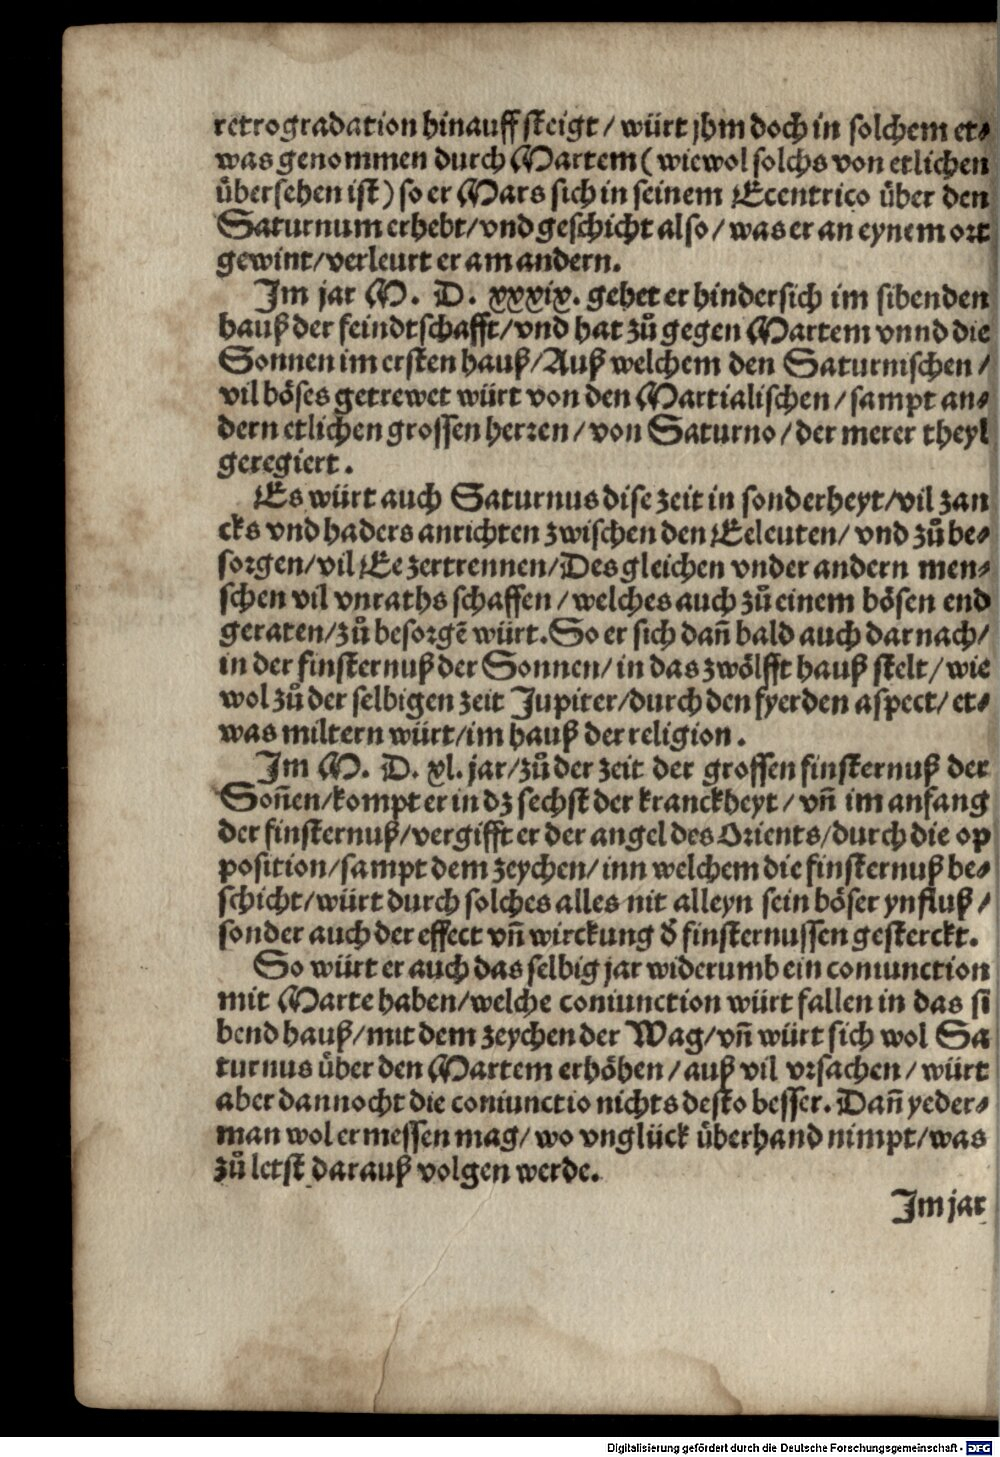 retrogradation hinauff steigt / würt jhm doch in solchem et⸗
was genommen durch Martem ( wiewol solchs von etlichen
übersehen ist ) so er Mars sich in seinem Ecentrico über den
Saturnum erhebt/vnd geschicht also / was er an eynem ort
gewint/verleurt er am andern.
Im jar M. D. xxxix. gehet er hindersich im sibenden
hauß der feindtschafft/vnd hat zů gegen Martem vnnd die
Sonnen im ersten hauß/Auß welchem den Saturnischen /
vil böses getrewet würt von den Martialischen / sampt an⸗
dern etlichen grossen herren / von Saturno / der merer theyl
geregiert.
Es würt auch Saturnus dise zeit in sonderheyt/vil zan
cks vnd haders anrichten zwischen den Eeleuten/ vnd zů be⸗
sorgen/vil Ee zertrennen/Desgleichen vnder andern men⸗
schen vil vnraths schaffen / welches auch zů einem bösen end
geraten/zů besorgē würt. So er sich dañ bald auch darnach/
in der finsternuß der Sonnen/ in das zwölfft hauß stelt/ wie
wol zů der selbigen zeit Jupiter/durch den fyerden aspect/ et⸗
was miltern würt/im hauß der religion.
Im M. D. xl. jar/zů der zeit der grossen finsternuß der
Soñen/kompt er in dz sechst der kranckheyt / vñ im anfang
der finsternuß/vergifft er der angel des Orients/durch die op
position/sampt dem zeychen/ inn welchem die finsternuß be⸗
schicht/würt durch solches alles nit alleyn sein böser ynfluß /
sonder auch der effect vñ wirckung d̕ finsternussen gesterckt.
So würt er auch das selbig jar widerumb ein coniunction
mit Marte haben/welche coniunction würt fallen in das si
bend hauß/mit dem zeychen der Wag/vñ würt sich wol Sa
turnus über den Martem erhöhen / auß vil vrsachen / würt
aber dannocht die coniunctio nichts desto besser. Dañ yeder⸗
man wol ermessen mag/ wo vnglück überhand nimpt/was
zů letst darauß volgen werde.
Im jar
Digitalisierung gefördert durch die Deutsche Forschungsgemeinschaft - DFG